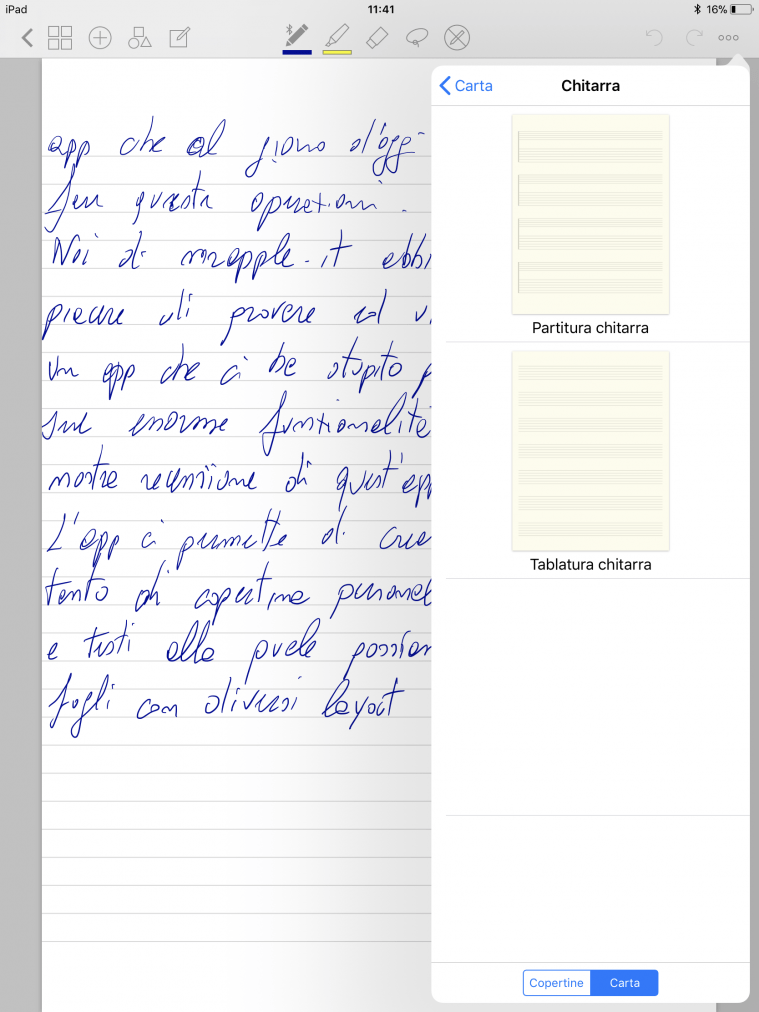 iPad 11:41 16%
Carta Chitarra
app che al giorno d'oggi
fare queste operazioni.
Noi di mrapple.it abbi
piacere di provare ed
un app che ci ha stupito
sue enorme funzionalità
nostra recensione di quest'app
L'app ci permette di crea
tanto di copertina personal
e tasti alla quale possiam
fogli con diversi layout
Partitura chitarra
Tablatura chitarra
Copertine Carta